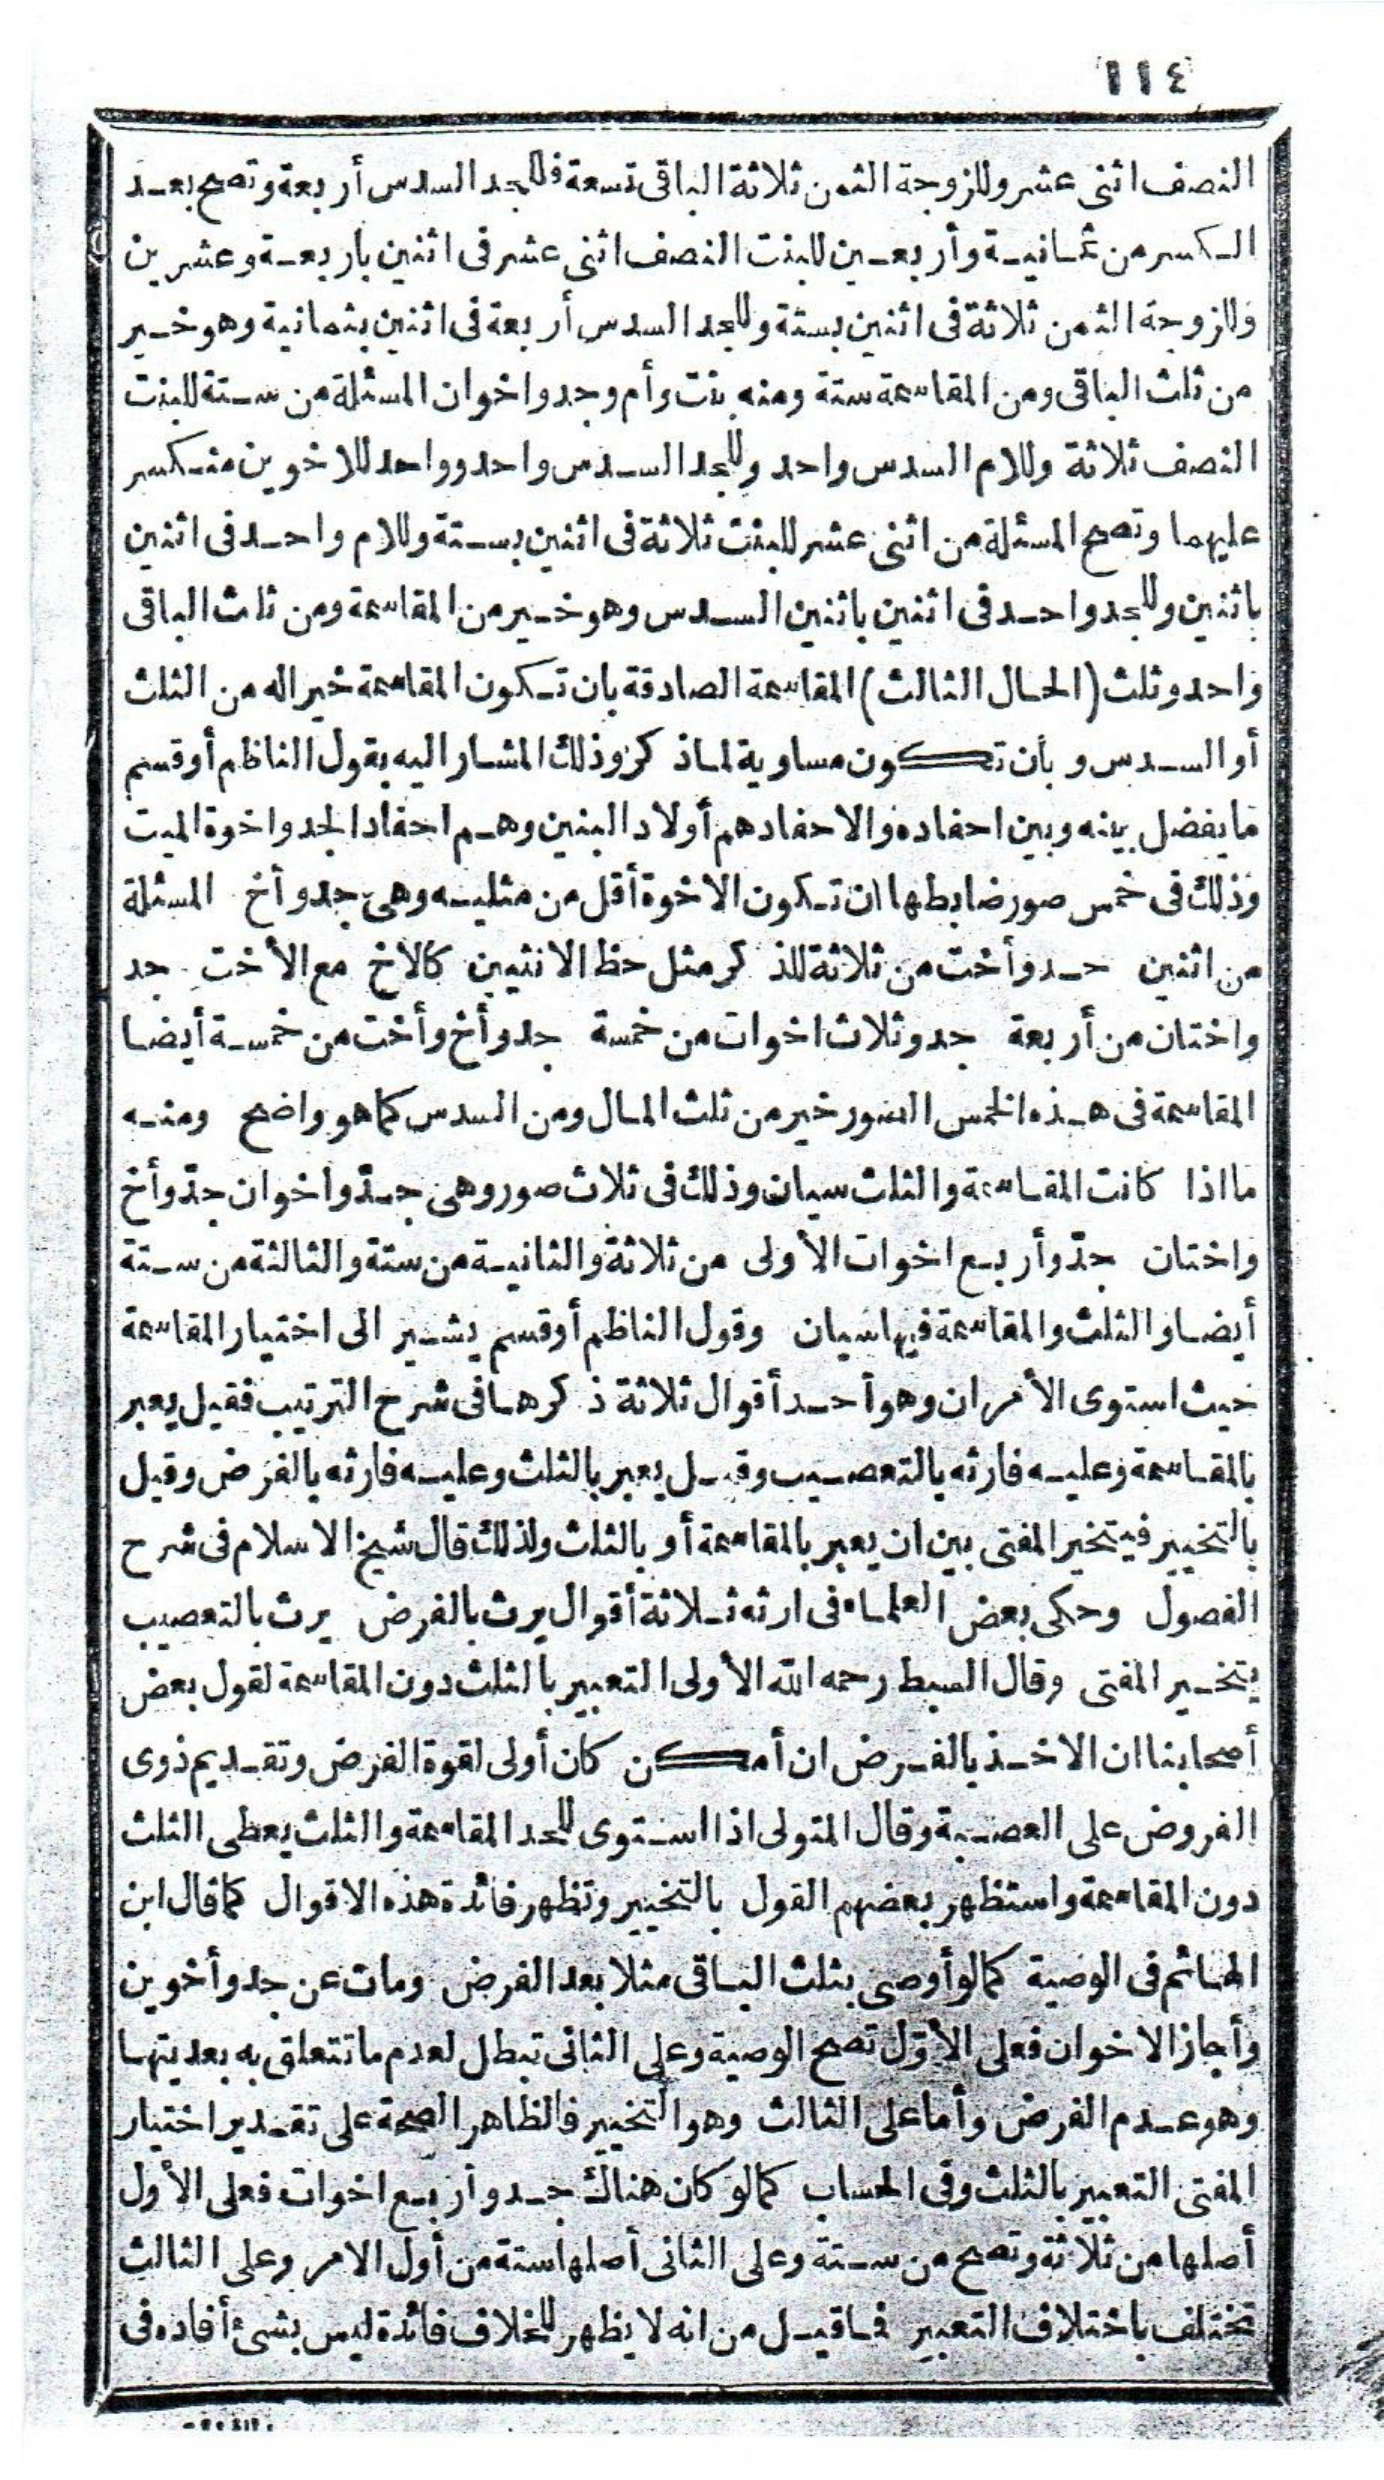 ١١٤
النصف اثنى عشر وللزوجة الثمن ثلاثة الباقى تسعة فللجد السدس أربعة وتصح بعد
الكسر من ثمانية وأربعين للبنت النصف اثنى عشر فى اثنين باربعة وعشرين
وللزوجة الثمن ثلاثة فى اثنين بستة وللجد السدس أربعة فى اثنين بثمانية وهو خير
من ثلث الباقى ومن المقاسمة ستة ومنه بنت وأم وجد واخوان المسئلة من ستة للبنت
النصف ثلاثة وللام السدس واحد وللجد السدس واحد وواحد للاخوين منكسر
عليهما وتصح المسئلة من اثنى عشر للبنت ثلاثة فى اثنين بستة وللام واحد فى اثنين
باثنين وللجد واحد فى اثنين باثنين السدس وهو خير من المقاسمة ومن ثلث الباقى
واحد وثلث (الحال الثالث) المقاسمة الصادقة بان تكون المقاسمة خيرا له من الثلث
أو السدس وبأن تكون مساوية لما ذكر وذلك المشار اليه بقول الناظم أو قسم
ما يفضل بينه وبين احفاده والاحفاد هم أولاد البنين وهم احفاد الجد واخوة الميت
وذلك فى خمس صور ضابطها ان تكون الاخوة أقل من مثليه وهى جد وأخ المسئلة
من اثنين جد وأخت من ثلاثة للذكر مثل حظ الانثيين كالاخ مع الأخت جد
واختان من أربعة جد وثلاث اخوات من خمسة جد وأخ وأخت من خمسة أيضا
المقاسمة فى هذه الخمس الصور خير من ثلث المال ومن السدس كما هو واضح ومنه
ما اذا كانت المقاسمة والثلث سيان وذلك فى ثلاث صور وهى جدّ واخوان جدّ وأخ
واختان جدّ وأربع اخوات الأولى من ثلاثة والثانية من ستة والثالثة من ستة
أيضا والثلث والمقاسمة فيها سيان وقول الناظم أو قسم يشير الى اختيار المقاسمة
حيث استوى الأمران وهو أحد أقوال ثلاثة ذكرها فى شرح الترتيب فقيل يعبر
بالمقاسمة وعليه فارثه بالتعصيب وقيل يعبر بالثلث وعليه فارثه بالفرض وقيل
بالتخيير فيتخير المفتى بين ان يعبر بالمقاسمة أو بالثلث ولذلك قال شيخ الاسلام فى شرح
الفصول وحكى بعض العلماء فى ارثه ثلاثة أقوال يرث بالفرض يرث بالتعصيب
يتخير المفتى وقال السبط رحمه الله الأولى التعبير بالثلث دون المقاسمة لقول بعض
أصحابنا ان الاخذ بالفرض ان أمكن كان أولى لقوة الفرض وتقديم ذوى
الفروض على العصبة وقال المتولى اذا استوى للجد المقاسمة والثلث يعطى الثلث
دون المقاسمة واستظهر بعضهم القول بالتخيير وتظهر فائدة هذه الاقوال كما قال ابن
الهائم فى الوصية كما لو أوصى بثلث الباقى مثلا بعد الفرض ومات عن جد وأخوين
وأجاز الاخوان فعلى الأوّل تصح الوصية وعلى الثانى تبطل لعدم ما تتعلق به بعديتها
وهو عدم الفرض وأما على الثالث وهو التخيير فالظاهر الصحة على تقدير اختيار
المفتى التعبير بالثلث وفى الحساب كما لو كان هناك جد وأربع اخوات فعلى الأول
أصلها من ثلاثة وتصح من ستة وعلى الثانى أصلها ستة من أول الامر وعلى الثالث
تختلف باختلاف التعبير فما قيل من انه لا يظهر للخلاف فائدة ليس بشئ أفاده فى